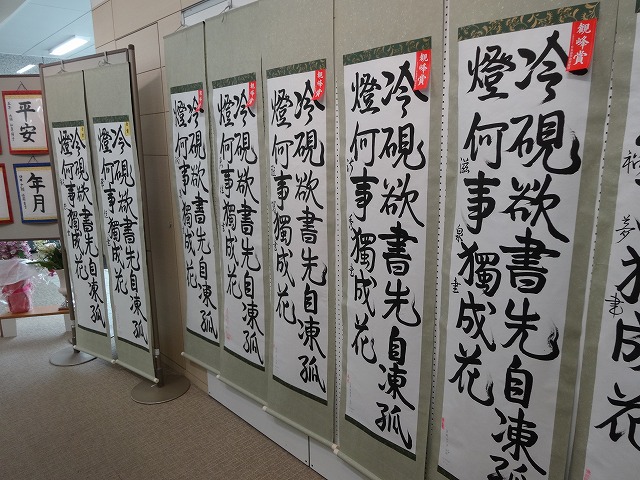 平安
年月
冷硯欲書先自凍孤
燈何事獨成花
冷硯欲書先自凍孤
燈何事獨成花
冷硯欲書先自凍孤
燈何事獨成花
観峰賞
冷硯欲書先自凍孤
燈何事獨成花
観峰賞
冷硯欲書先自凍孤
燈何事獨成花
観峰賞
冷硯欲書先自凍孤
燈何事獨成花
観峰賞
冷硯欲書先自凍孤
燈何事獨成花
滋泉書
獨成花
夢書